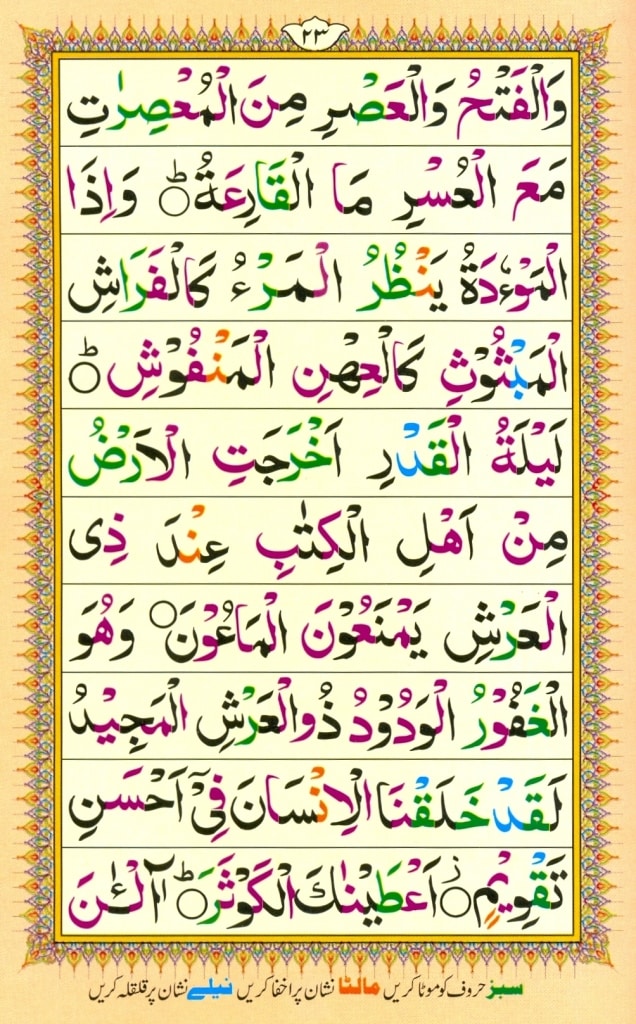 ٢٣
وَالْفَتْحُ وَالْعَصْرِ مِنَ الْمُعْصِرٰتِ
مَعَ الْعُسْرِ مَا الْقَارِعَةُ ؕ○ وَاِذَا
الْمَوْءٗدَةُ يَنْظُرُ الْمَرْءُ كَالْفَرَاشِ
الْمَبْثُوْثِ كَالْعِهْنِ الْمَنْفُوْشِ ؕ○
لَيْلَةُ الْقَدْرِ اَخْرَجَتِ الْاَرْضُ
مِنْ اَهْلِ الْكِتٰبِ عِنْدَ ذِى
الْعَرْشِ يَمْنَعُوْنَ الْمَاعُوْنَ ○ وَهُوَ
الْغَفُوْرُ الْوَدُوْدُ ذُوالْعَرْشِ الْمَجِيْدُ
لَقَدْ خَلَقْنَا الْاِنْسَانَ فِىْٓ اَحْسَنِ
تَقْوِيْمٍ ؗ○ اَعْطَيْنٰكَ الْكَوْثَرَ ؕ○ آٰلْــٰٔنَ
سبز حروف کو موٹا کریں مالٹا نشان پر اخفا کریں نیلے نشان پر قلقلہ کریں